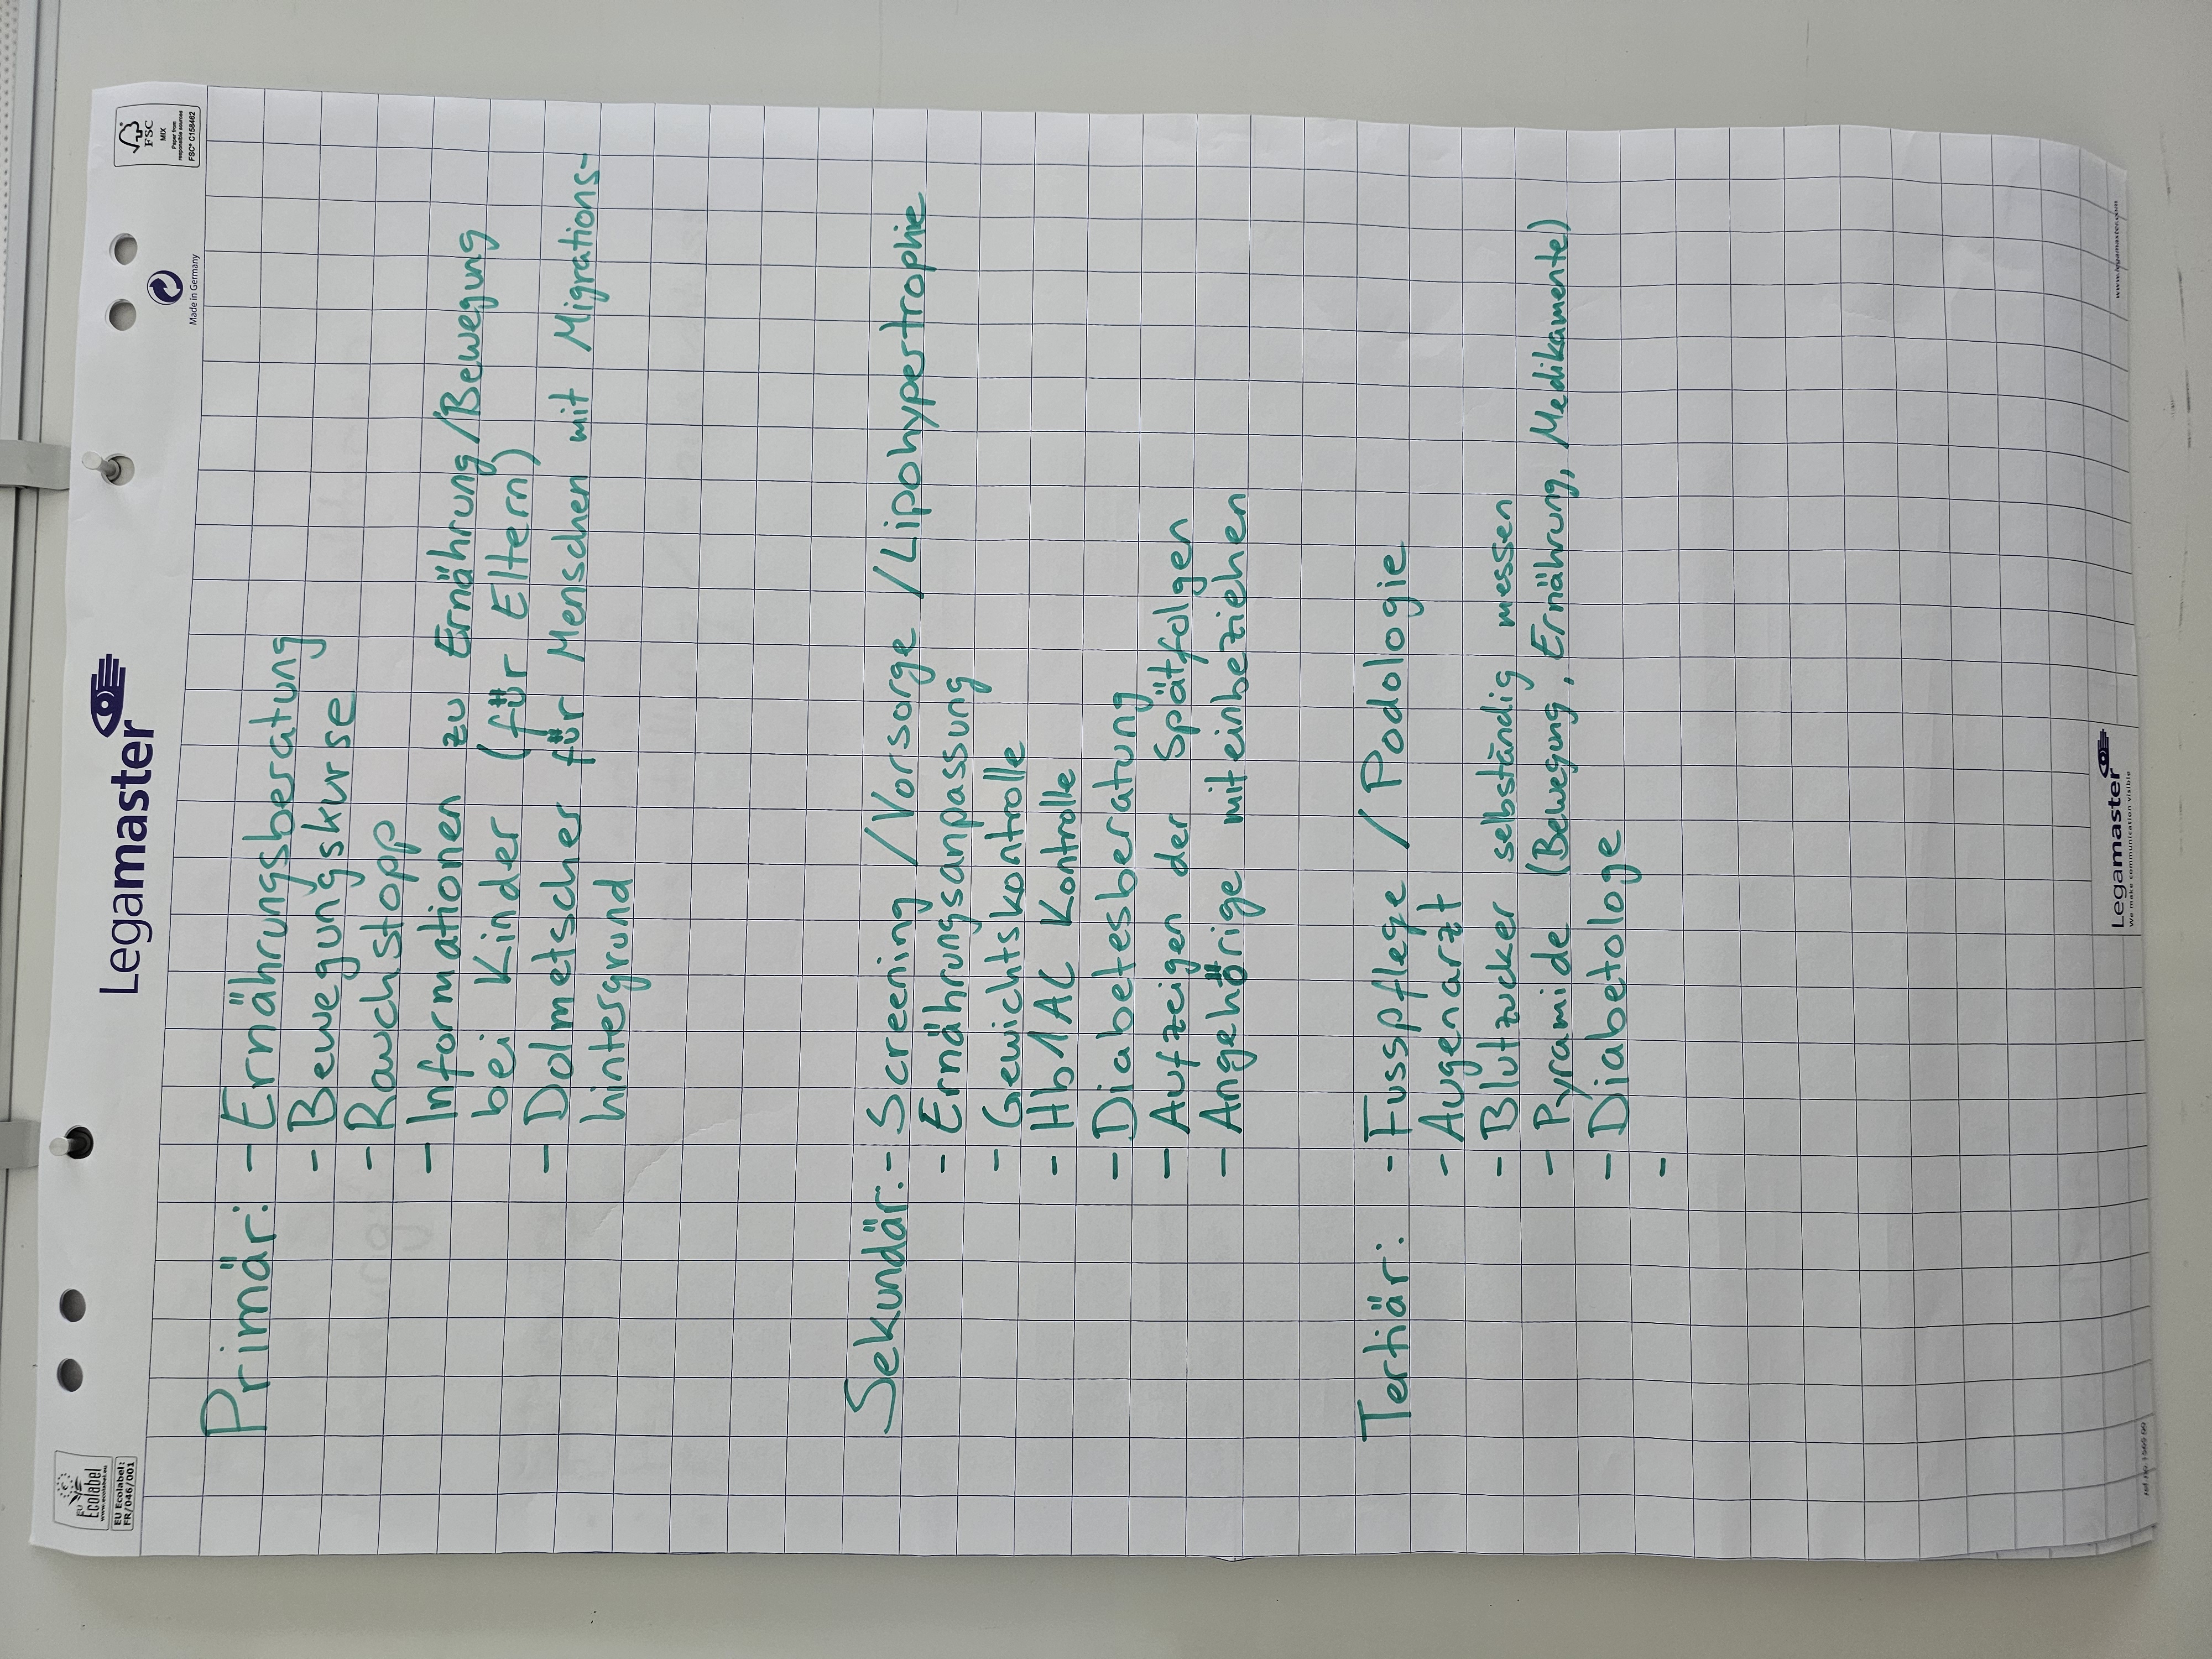 EU Ecolabel
www.ecolabel.eu
EU Ecolabel:
FR/046/001
Legamaster
Made in Germany
FSC
MIX
Paper from
responsible sources
FSC® C158462
Primär: - Ernährungsberatung
- Bewegungskurse
- Rauchstopp
- Informationen zu Ernährung/Bewegung
bei Kinder (für Eltern)
- Dolmetscher für Menschen mit Migrations-
hintergrund
Sekundär: - Screening /Vorsorge /Lipohypertrophie
- Ernährungsanpassung
- Gewichtskontrolle
- Hb1AC Kontrolle
- Diabetesberatung
- Aufzeigen der Spätfolgen
- Angehörige miteinbeziehen
Tertiär: - Fusspflege / Podologie
- Augenarzt
- Blutzucker selbständig messen
- Pyramide (Bewegung, Ernährung, Medikamente)
- Diabetologe
-
Legamaster
We make communication visible
www.legamaster.com